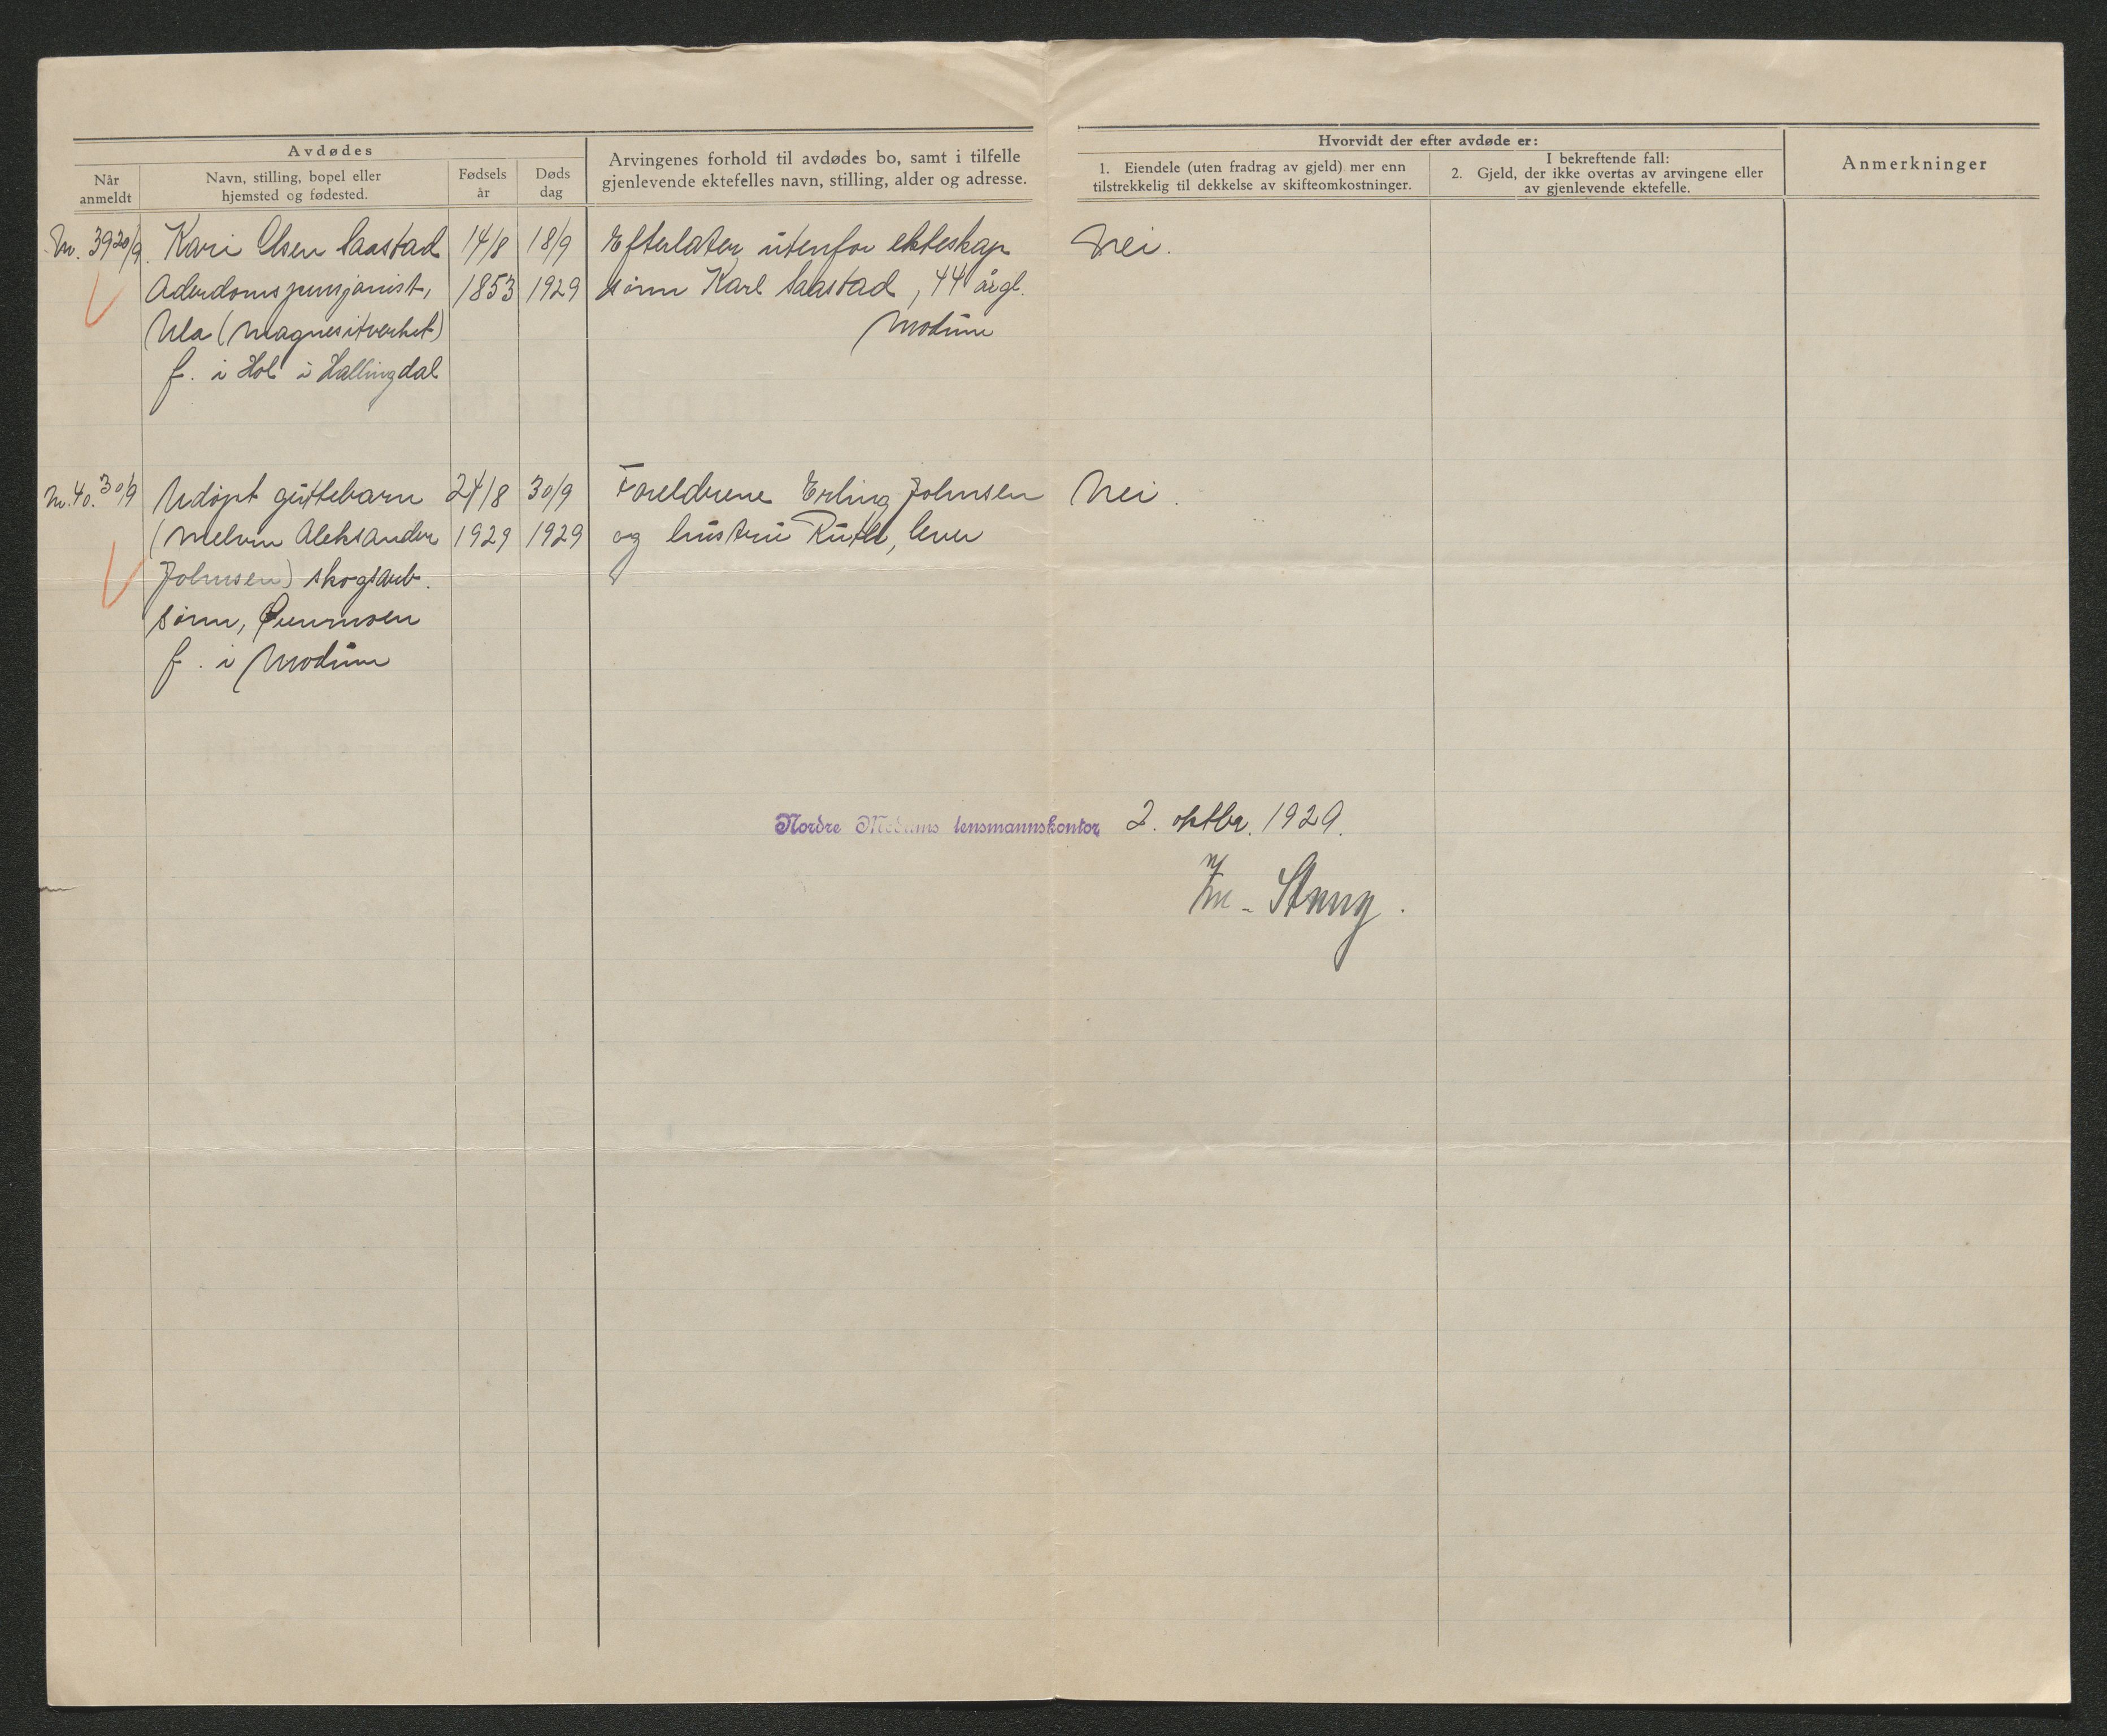 Avdødes
Når anmeldt
Navn, stilling, bopel eller hjemsted og fødested.
Fødsels år
Døds dag
Arvingenes forhold til avdødes bo, samt i tilfelle
gjenlevende ektefelles navn, stilling, alder og adresse.
Hvorvidt der efter avdøde er:
1. Eiendele (uten fradrag av gjeld) mer enn
tilstrekkelig til dekkelse av skifteomkostninger.
I bekreftende fall:
2. Gjeld, der ikke overtas av arvingene eller
av gjenlevende ektefelle.
Anmerkninger
Nr. 39 20/9. Kari Olsen Saastad 14/8 18/9 Efterlater utenfor ekteskap Nei.
Alderdomspensjonist, 1853 1929 sønn Karl Saastad, 44 årgl.
Ula (Magnesitverket) Modum
f. i Hol i Hallingdal
Nr. 40. 30/9 Udøpt guttebarn 24/8 30/9 Foreldrene Erling Johnsen Nei.
(Melvin Aleksander 1929 1929 og hustru Ruth, lever
Johnsen) skogsarb.
sønn,
f. i Modum
Nordre Modums lensmannskontor, 2. oktbr. 1929.